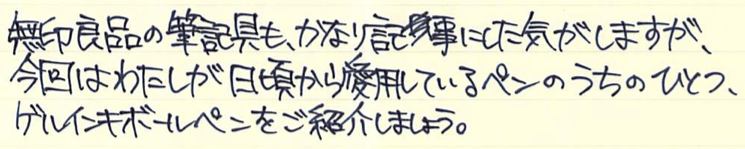 無印良品の筆記具も、かなり記事にした気がしますが、
今回はわたしが日頃から愛用しているペンのうちのひとつ、
ゲルインキボールペンをご紹介しましょう。